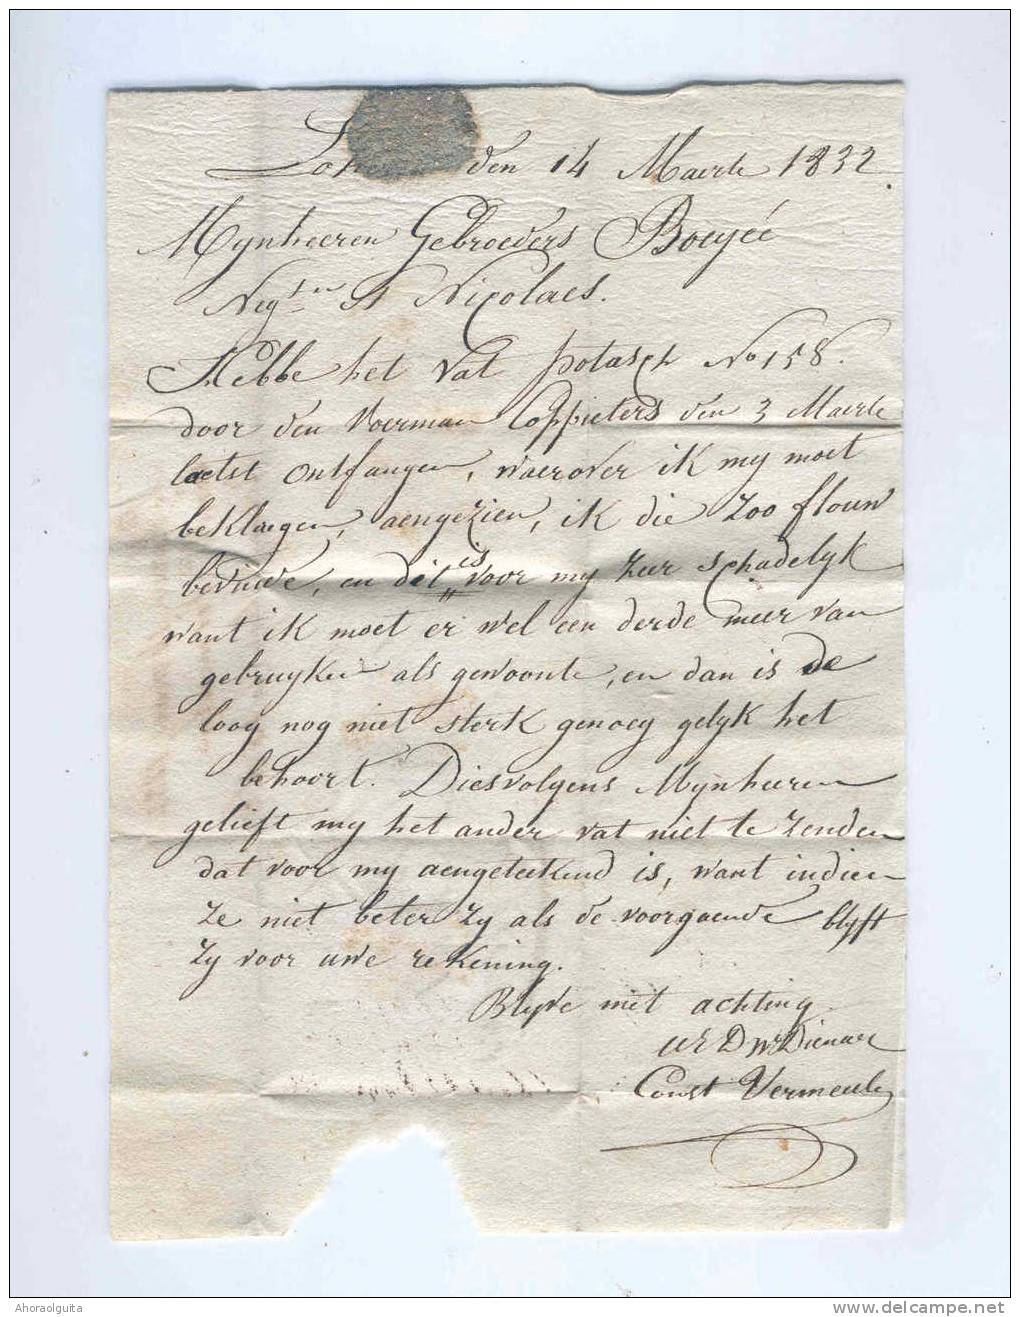 den 14 Maerte 1832.
Mynheeren Gebroeders Boeyé
Negt.en St Nicolaes.
Hebbe het vat potasch No 158.
door den voerman Coppieters den 3 Maerte
laetst ontfangen, waerover ik my moet
beklaegen, aengezien, ik die zoo flouw
bevinde, en dit is voor my zeer schadelyk
want ik moet er wel een derde meer van
gebruyken als gewoonte, en dan is de
loog nog niet sterk genoeg gelyk het
behoort. Diesvolgens Mynheeren
gelieft my het ander vat niet te zenden
dat voor my aengeteekend is, want indien
ze niet beter zy als de voorgaende blyft
zy voor uwe rekening.
Blyve met achting
UE DWDienaer
Const Vermeule
Ahoraolguita
www.delcampe.net